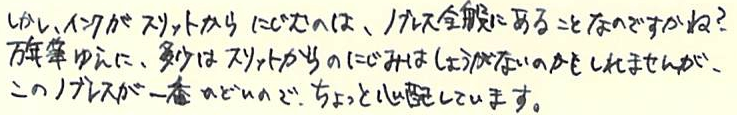 しかし、インクがスリットからにじむのは、ノブレス全般にあることなのですかね?
万年筆ゆえに、多少はスリットからのにじみはしょうがないのかもしれませんが、
このノブレスが一番ひどいので、ちょっと心配しています。